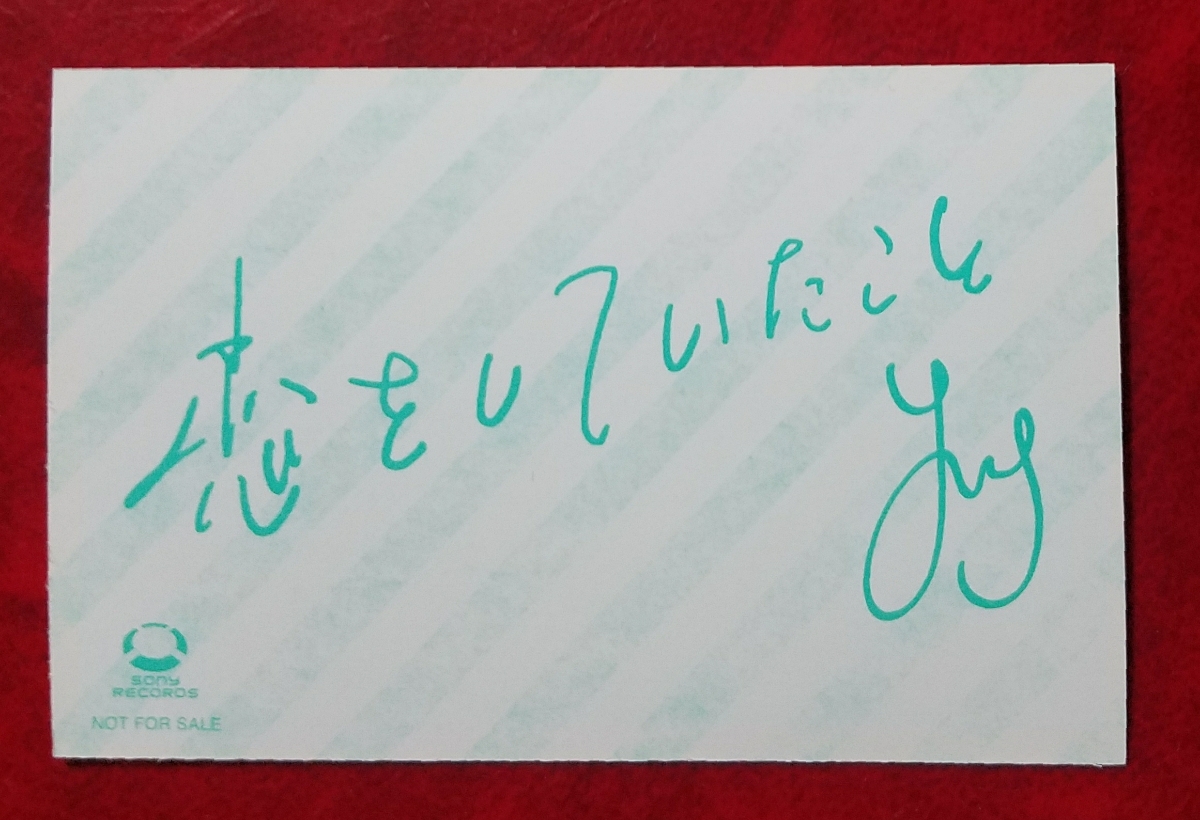 恋をしていたこと
Yuj
SONY
RECORDS
NOT FOR SALE